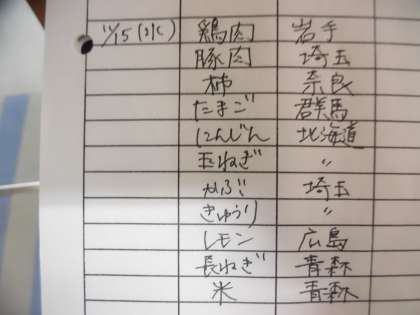 11/15(水) 鶏肉 岩手
豚肉 埼玉
柿 奈良
たまご 群馬
にんじん 北海道
玉ねぎ 〃
かぶ 埼玉
きゅうり 〃
レモン 広島
長ねぎ 青森
米 青森